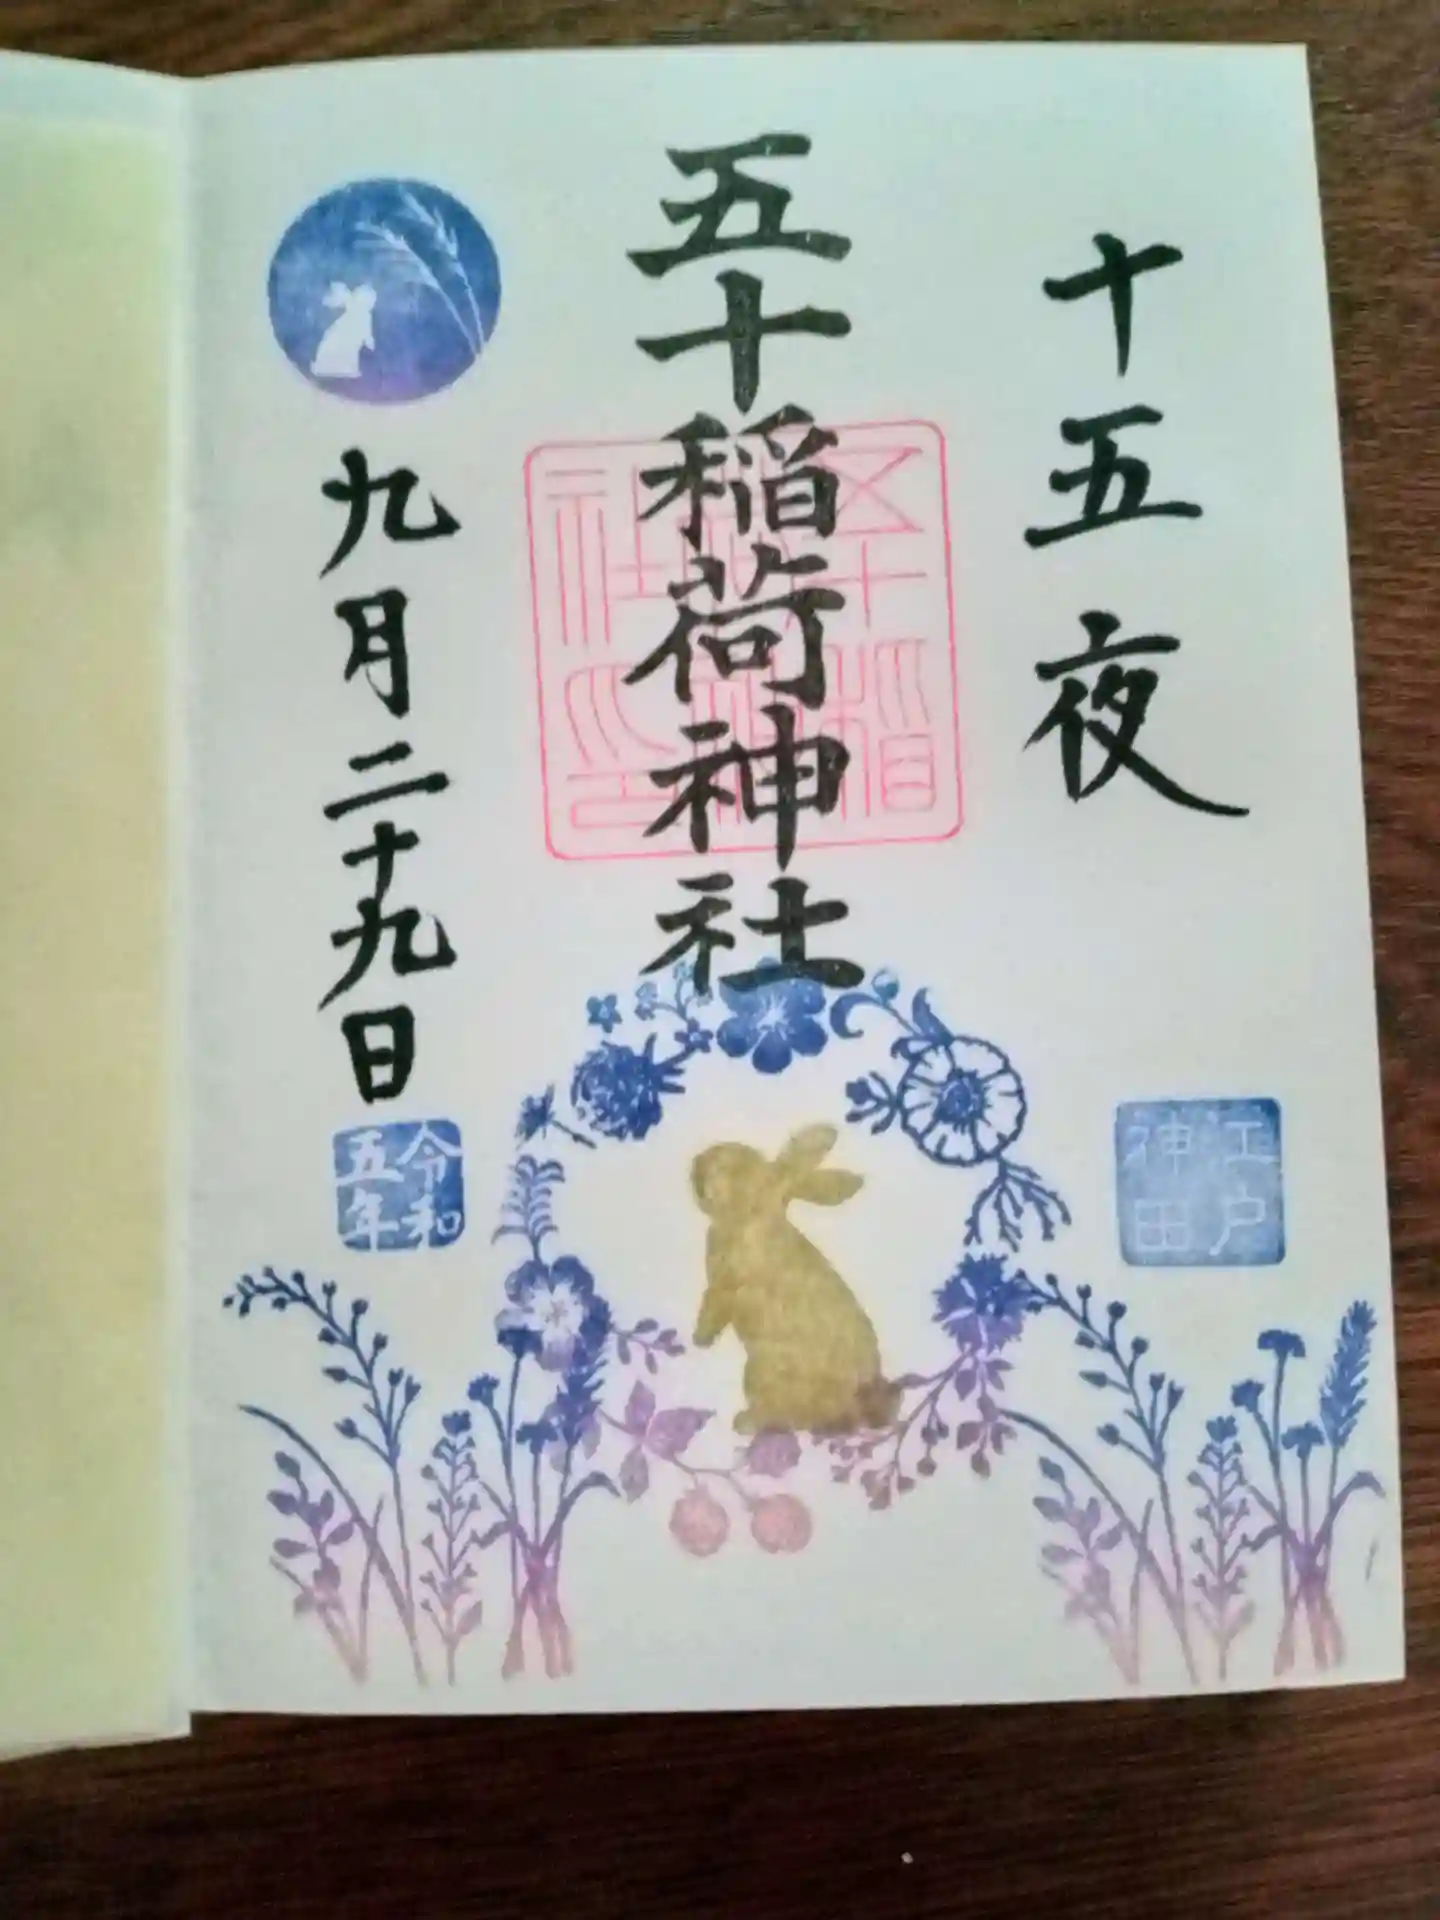 十五夜
江戸
神田
五十稲荷神社
五十稲
荷神
社之印
九月二十九日
令和
五年